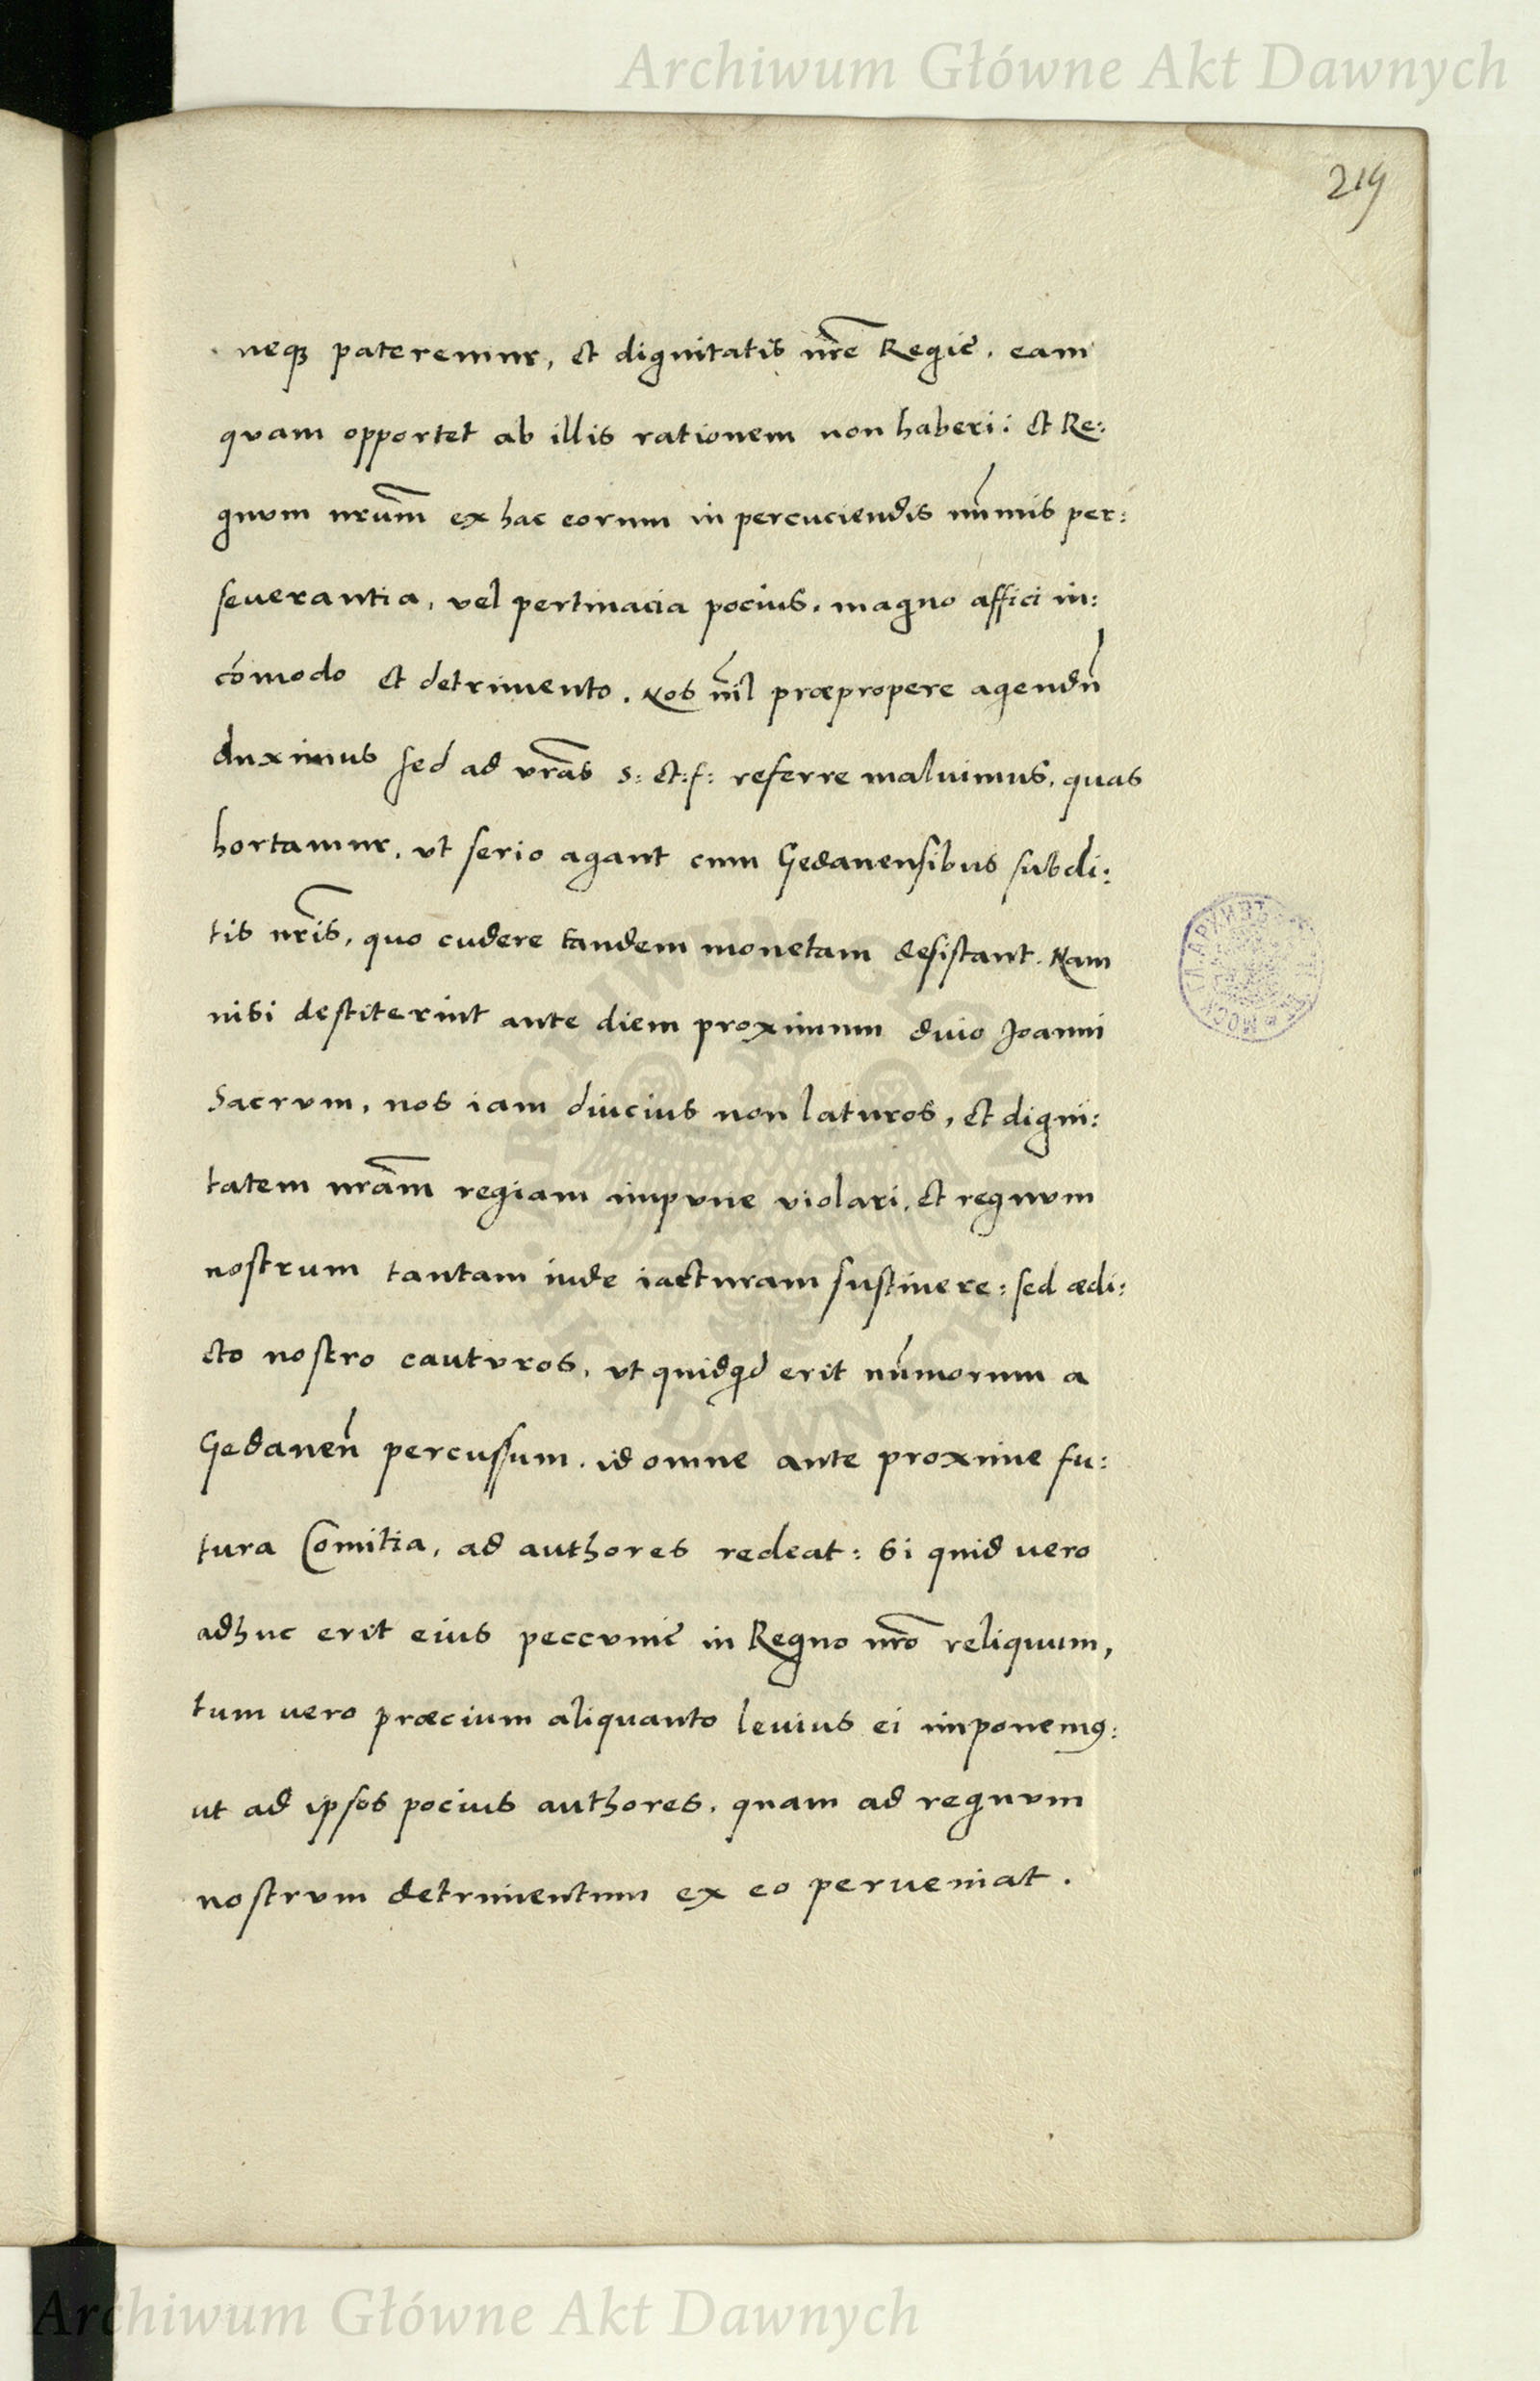 Archiwum Główne Akt Dawnych
219
neq3 pateremur, et dignitatis nr̃e Regię. eam
quam opportet ab illis rationem non haberi: et Re:
gnvm nrũm ex hac eorum in percuciendis nũmis per:
seuerantia, vel pertinacia pocius. magno affici in:
cõmodo et detrimento. Nos nĩl præpropere agendũ
duximus sed ad vrãs s: et: f: referre maluimus, quas
hortamur, vt serio agant cum Gedanensibus subdi:
tis nrĩs, quo cudere tandem monetam desistant. Nam
nisi destiterint ante diem proximum diuo Joanni
Sacrvm, nos iam diucius non laturos, et digni:
tatem nrãm regiam impvne violari, et regnvm
nostrum tantam inde iacturam sustinere: sed ædi:
cto nostro cautvros, vt quidqid erit nũmorum a
Gedaneñ percussum. id omne ante proxime fu:
tura Comitia, ad authores redeat: Si quid vero
adhuc erit eius peccvnię in Regno nrõ reliquum,
tum uero præcium aliquanto leuius ei imponemꝰ:
ut ad ipsos pocius authores, quam ad regnvm
nostrvm detrimentum ex eo perueniat.
Archiwum Główne Akt Dawnych